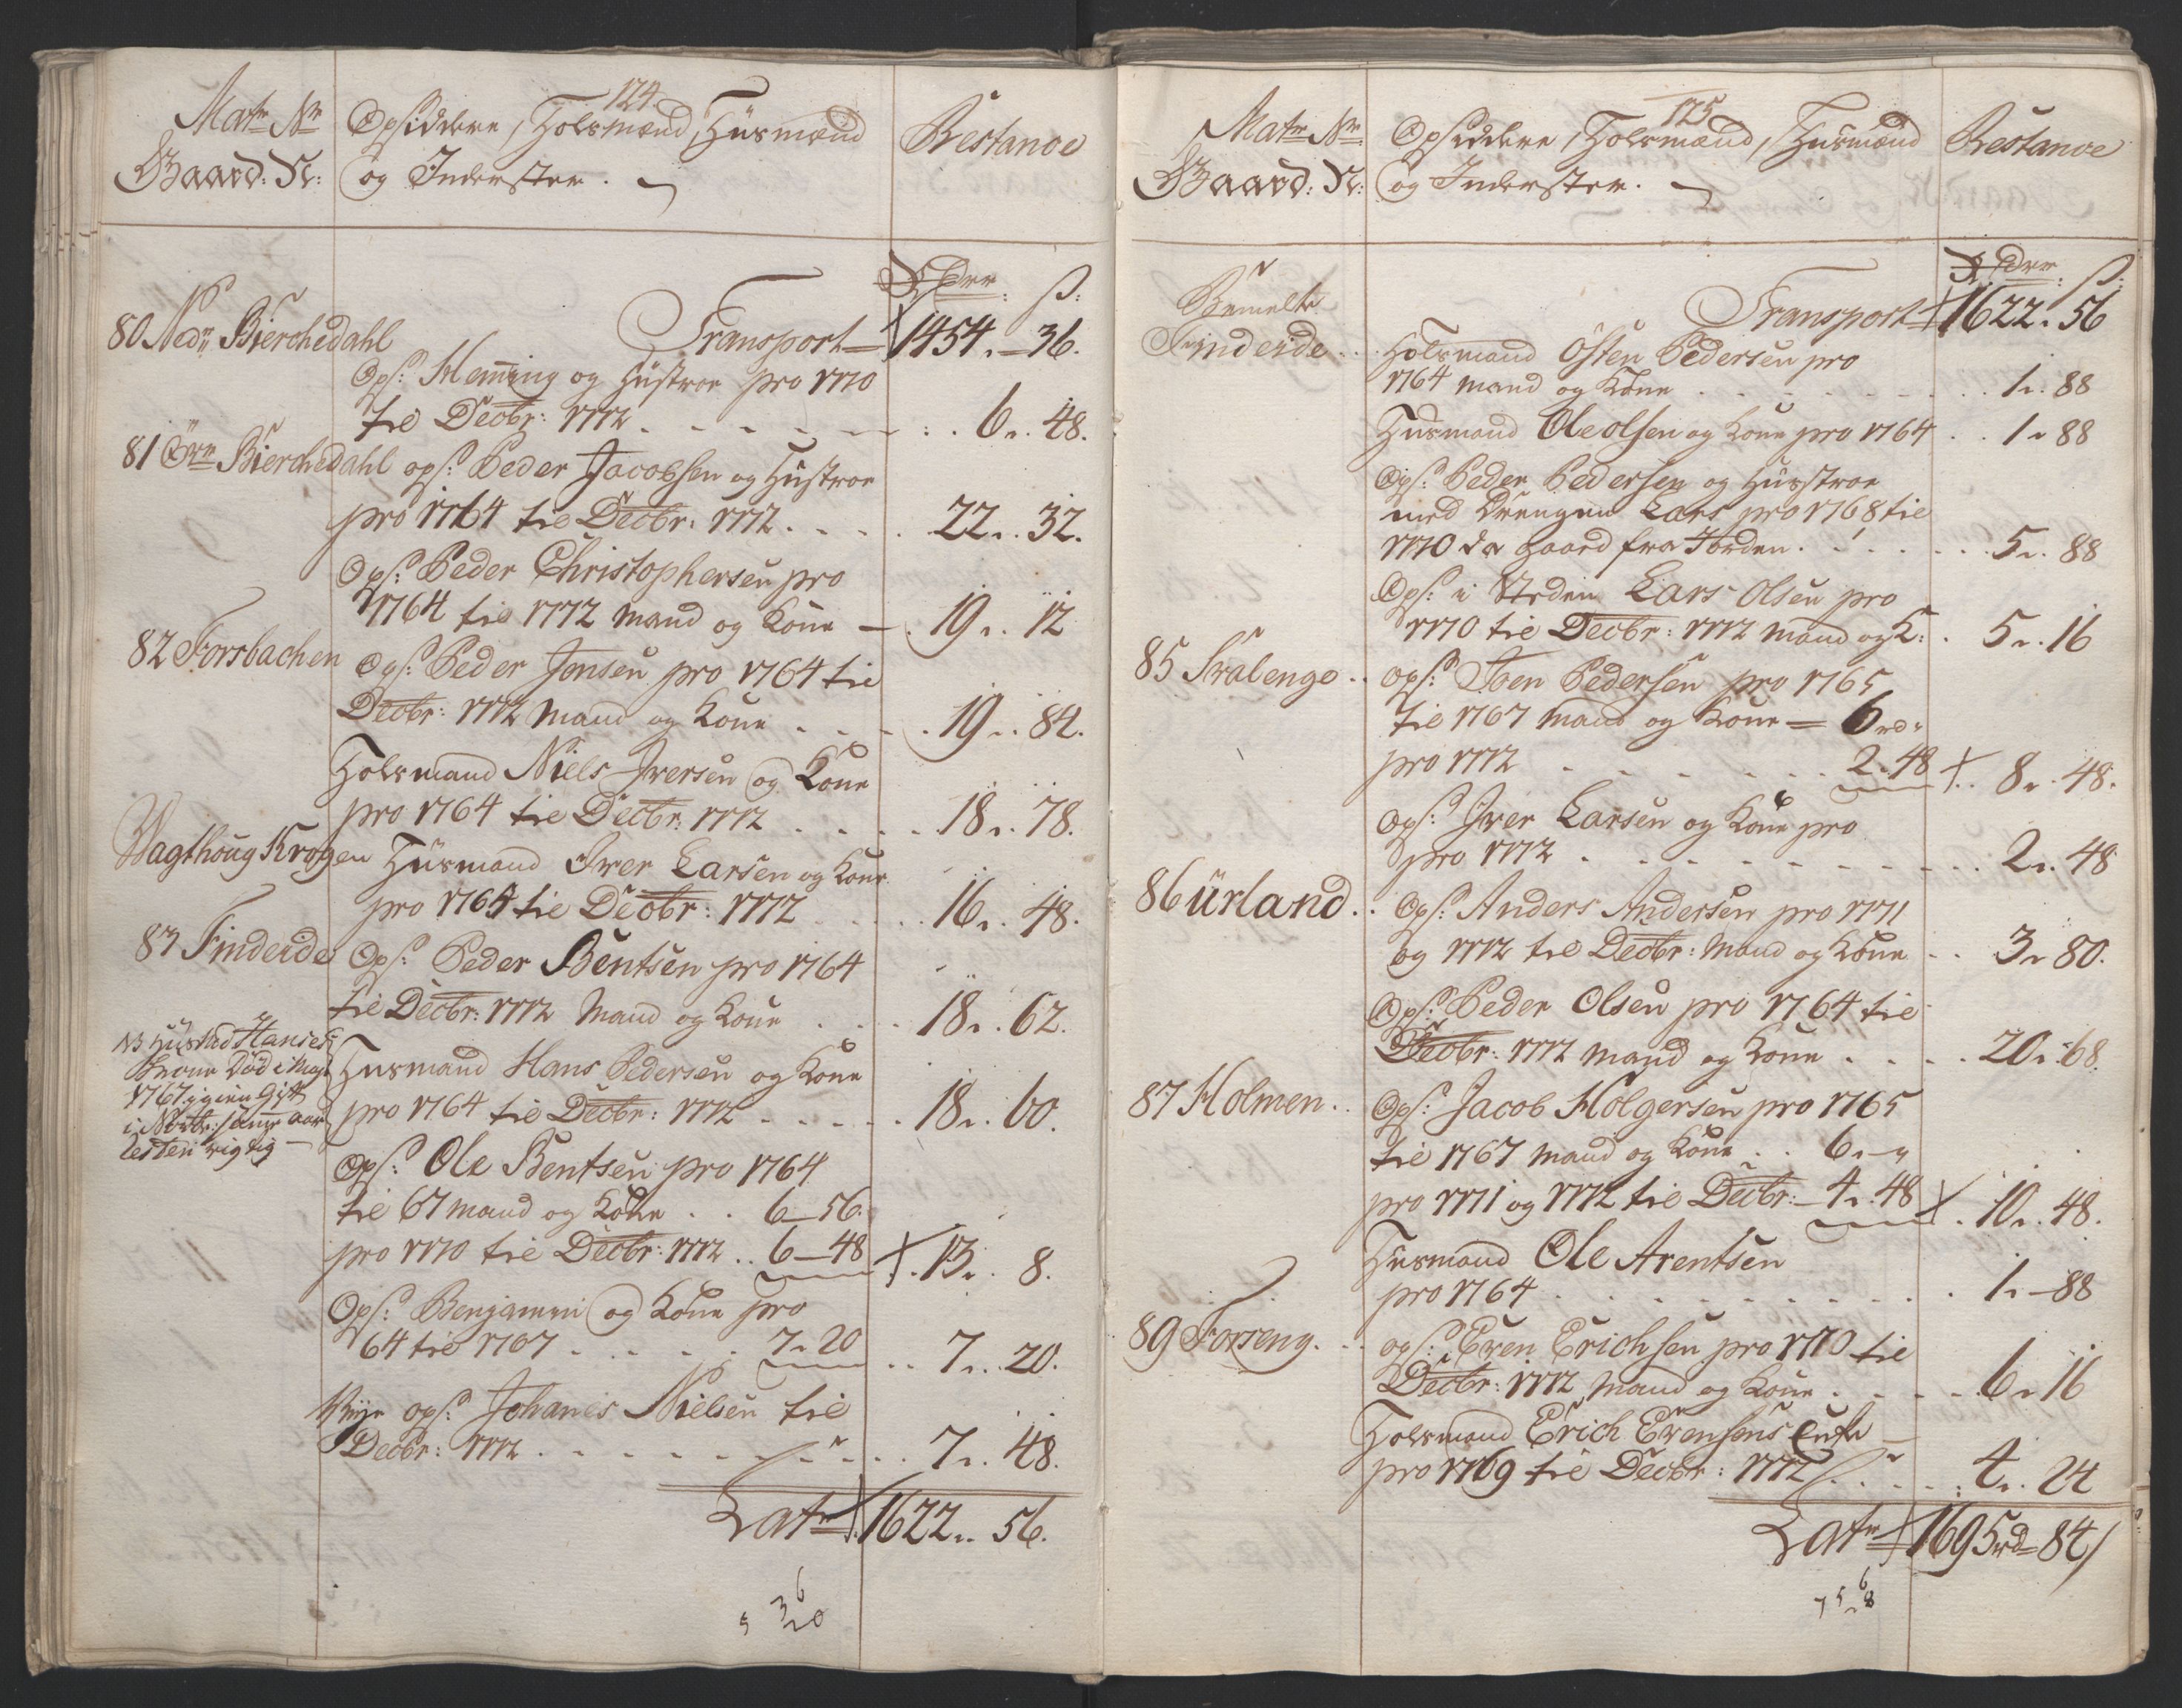 124.
Matr Nr
Gaard: N:
Opsiddere, Holsmænd, Huusmænd
og Inderster.
Restance
Rdr ß:
Transport 1454. 36.
80 Nedr Bierchedahl
Ops: Hemming og Hustroe pro 1770
til Decbr: 1772 6.. 48.
81 Øvr Bierchedahl ops: Peder Jacobsen og Hustroe
pro 1764 til Decbr: 1772 22.. 32.
Ops: Peder Christophersen pro
1764 til 1772 Mand og Kone 19.. 12
82 Forsbachen
Ops: Peder Jonsen pro 1764 til
Decbr: 1772 Mand og Kone 19.. 84.
Holsmand Niels Iversen og Kone
pro 1764 til Decbr: 1772 18.. 78.
Wagthoug Krogen Huusmand Iver Larsen og Kone
pro 1765 til Decbr: 1772 16.. 48.
83 Findeide
Ops: Peder Bentsen pro 1764
til Decbr: 1772 Mand og Kone 18.. 62.
NB Husmd Hanses
Kone Død i Maji
1767 igien Gift
i Novbr: samme aar
Resten rigtig
Husmand Hans Pedersen og Kone
pro 1764 til Decbr: 1772 18.. 60.
Ops: Ole Bentsen pro 1764
til 67 mand og Kone 6–56.
pro 1770 til Decbr: 1772 .. 6–48 13.. 8.
Ops: Benjamin og Kone pro
64 til 1767 7. 20 7.. 20.
Nye ops: Johanes Nielsen til
Decbr: 1772 7.. 48.
Latr 1622.. 56.
125
Matr Nr
Gaard: N:
Opsiddere, Holsmænd, Husmænd
og Inderster.
Restance
Rdr ß:
Transport 1622. 56
Bemelte
Findeide
Holsmand Østen Pedersen pro
1764 mand og Kone 1.. 88
Husmand Ole Olsen og Kone pro 1764 1. 88
Ops: Peder Pedersen og Husstroe
med Drengen Lars pro 1768 til
1770 da Gaard fra Jorden 5.. 88
Ops: i Steden Lars Olsen pro
1770 til Decbr: 1772 mand og K: 5.. 16
85 Stralenge
ops: Joen Pedersen pro 1765
til 1767 mand og Kone = 6rd
pro 1772 2. 48 8.. 48.
Ops: Iver Larsen og Kone pro
pro 1772 2.. 48
86 ürland
Ops: Anders Andersen pro 1771
og 1772 til Decbr: Mand og Kone 3. 80.
Ops: Peder Olsen pro 1764 til
Decbr: 1772 mand og Kone 20. 68.
87 Holmen
Ops: Jacob Holgersen pro 1765
til 1767 mand og Kone 6.–
pro 1771 og 1772 til Decbr: 4. 48 10.. 48.
Husmand Ole Arentsen
pro 1764 1.–88
89 Forseng
ops: Even Erichsen pro 1770 til
Decbr: 1772 Mand og Kone 6. 16
Holsmand Erich Evensens Enke
pro 1769 til Decbr: 1772 4.. 24
Latr 1695rd 84ß